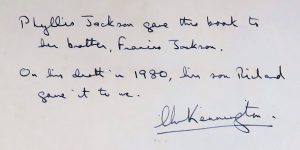 Phyllis Jackson gave this book to
her brother, Francis Jackson.
On his death in 1980, his son Richard
gave it to me.
Kennington.